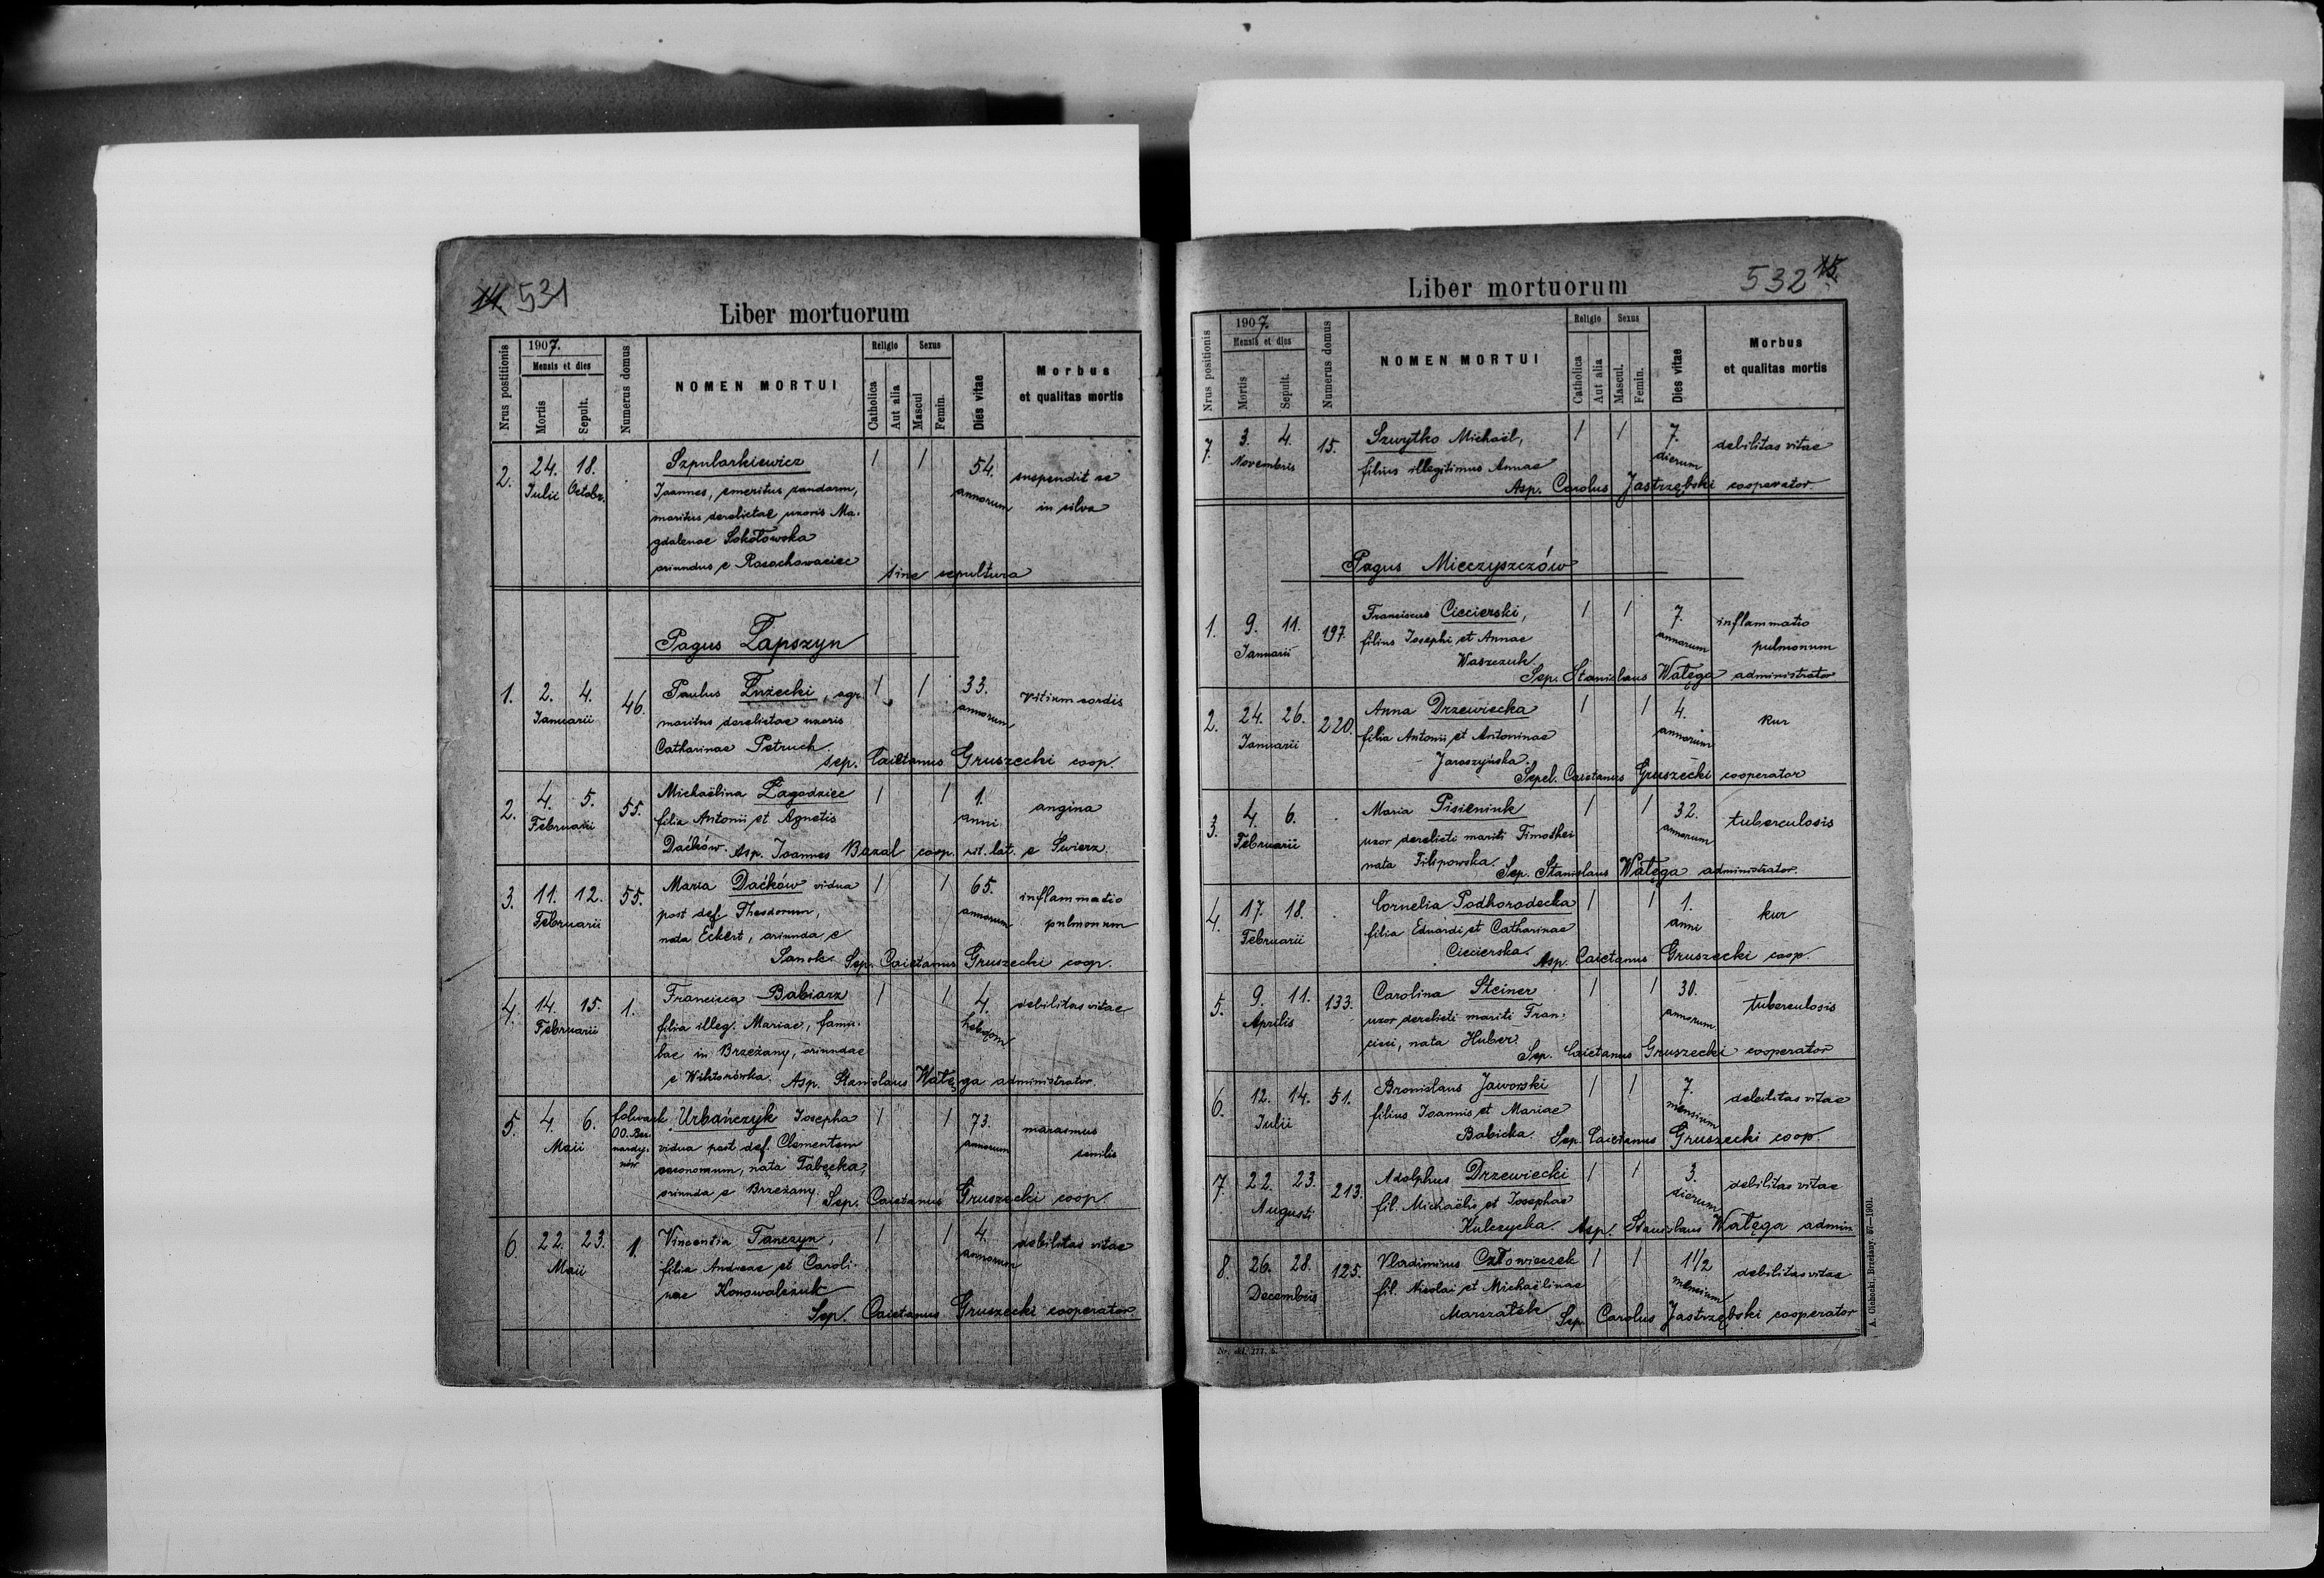 14. 531
Liber mortuorum
Nrus postitionis
1907.
Mensis et dies
Mortis
Sepult.
Numerus domus
NOMEN MORTUI
Religio
Catholica
Aut alia
Sexus
Mascul
Femin.
Dies vitae
Morbus
et qualitas mortis
2. 24. 18. Szpularkiewicz / / 54. suspendit se
Julii Octobr. Joannes, emeritus zandarm, annorum in silva
maritus derelictae uxoris Ma-
gdalenae Sokołowska
oriundus e Rosochowaciec sine sepultura
Pagus Łapszyn
1. 2. 4. 46. Paulus Łużecki, agr. / / 33. vitium cordis
Januarii maritus derelictae uxoris annorum
Catharinae Petruch.
sep. Caietanus Gruszecki coop.
2. 4. 5. 55. Michaëlina Zagodziec / / 1. angina
Februarii filia Antonii et Agnetis anni
Daćków. Asp. Joannes Bazal coop. rit. lat. e Świerz.
3. 11. 12. 55. Maria Daćków vidua / / 65. inflammatio
Februarii post def. Theodorum, annorum pulmonum
nata Eckert, oriunda e
Sanok. Sep. Caietanus Gruszecki coop.
4. 14. 15. 1. Francisca Babiarz / / 4. debilitas vitae
Februarii filia illeg. Mariae, famu- hebdom
lae in Brzeżany, oriundae
e Wiktorówka. Asp. Stanislaus Wałęga administrator.
5. 4. 6. folwark OO. Bernardynów Urbańczyk Josepha / / 73. marasmus
Maii vidua post def. Clementem annorum senilis
oeconomum, nata Tabęcka,
oriunda e Brzeżany. Sep. Caietanus Gruszecki coop.
6. 22. 23. 1. Vincentia Tanczyn, / / 4. debilitas vitae
Maii filia Andreae et Caroli- annorum
nae Konowalczuk
Sep. Caietanus Gruszecki cooperator.
532 15.
Liber mortuorum
Nrus positionis
1907.
Mensis et dies
Mortis
Sepult.
Numerus domus
NOMEN MORTUI
Religio
Catholica
Aut alia
Sexus
Mascul.
Femin.
Dies vitae
Morbus
et qualitas mortis
7. 3. 4. 15. Szwytko Michaël, / / 7. debilitas vitae
Novembris filius illegitimus Annae dierum
Asp. Carolus Jastrzębski cooperator.
Pagus Mieczyszczów
1. 9. 11. 197. Franciscus Ciecierski, / / 7. inflammatio
Januarii filius Josephi et Annae annorum pulmonum
Waszczuk.
Sep. Stanislaus Wałęga administrator
2. 24. 26. 220. Anna Drzewiecka / / 4. kur
Januarii filia Antonii et Antoninae annorum
Jaroszyńska.
Sepel. Caietanus Gruszecki cooperator
3. 4. 6. Maria Pisieniuk / / 32. tuberculosis
Februarii uxor derelicti mariti Timothei annorum
nata Filipowska. Sep. Stanislaus Wałęga administrator.
4. 17. 18. Cornelia Podhorodecka / / 1. kur
Februarii filia Eduardi et Catharinae anni
Ciecierska. Asp. Caietanus Gruszecki coop.
5. 9. 11. 133. Carolina Steiner / / 30. tuberculosis
Aprilis uxor derelicti mariti Fran- annorum
cisci, nata Huber.
Sep. Caietanus Gruszecki cooperator
6. 12. 14. 51. Bronislaus Jaworski / / 7. debilitas vitae
Julii filius Joannis et Mariae mensium
Babicka. Sep. Caietanus Gruszecki coop.
7. 22. 23. 213. Adolphus Drzewiecki / / 3. debilitas vitae
Augusti fil. Michaëlis et Josephae dierum
Kulczycka. Asp. Stanislaus Wałęga admin.
8. 26. 28. 125. Vladimirus Człowieczek / / 1 1/2 debilitas vitae
Decembris fil. Nicolai et Michaëlinae mensium
Marszałek Sep. Carolus Jastrzębski cooperator
Nr. skł. 277. b.
A. Cichocki, Brzeżany. 57—1901.